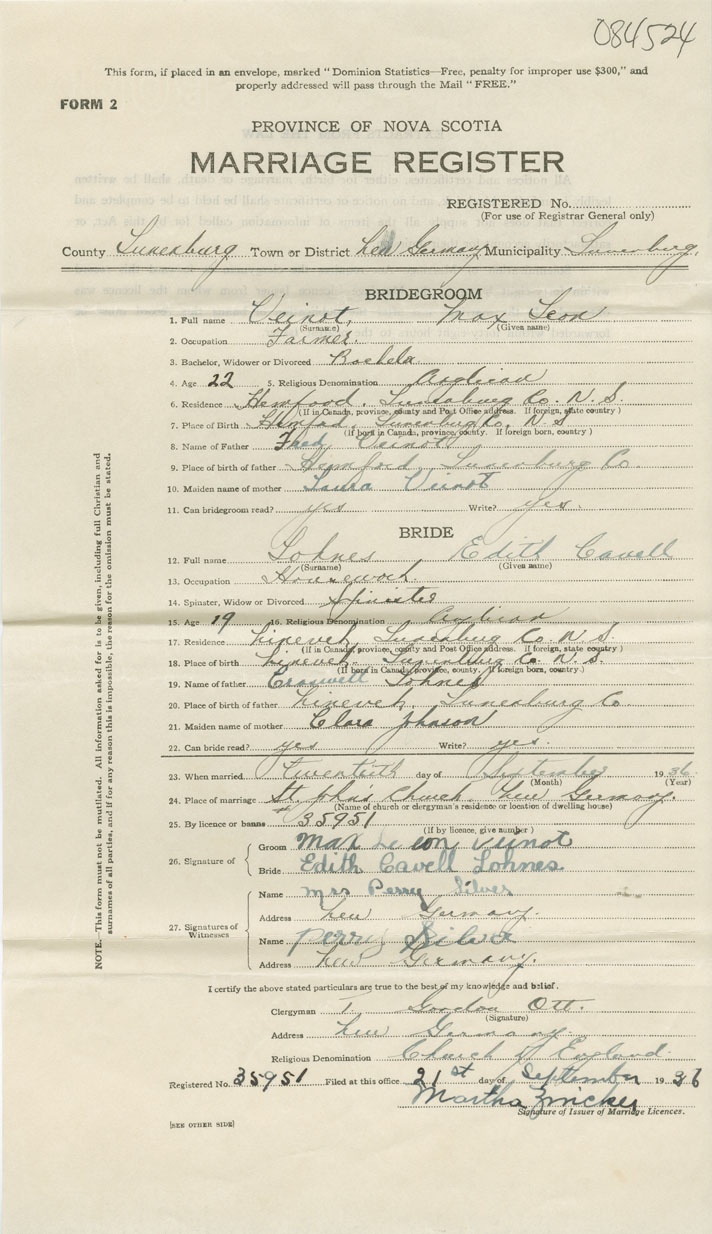 084524
This form, if placed in an envelope, marked "Dominion Statistics—Free, penalty for improper use $300," and
properly addressed will pass through the Mail "FREE."
FORM 2
PROVINCE OF NOVA SCOTIA
MARRIAGE REGISTER
REGISTERED No.
(For use of Registrar General only)
County Lunenburg Town or District New Germany Municipality Lunenburg.
BRIDEGROOM
1. Full name Veinot, Max Leon
(Surname) (Given name)
2. Occupation Farmer.
3. Bachelor, Widower or Divorced Bachelor
4. Age 22 5. Religious Denomination Anglican
6. Residence Hemford, Lunenburg Co. N.S.
(If in Canada, province, county and Post Office address. If foreign, state country)
7. Place of Birth Hemford, Lunenburg Co. N.S.
(If born in Canada, province, county. If foreign born, country)
8. Name of Father Fred Veinot
9. Place of birth of father Hemford, Lunenburg Co.
10. Maiden name of mother Laura Veinot
11. Can bridegroom read? yes Write? yes.
BRIDE
12. Full name Lohnes Edith Cavell
(Surname) (Given name)
13. Occupation Housework.
14. Spinster, Widow or Divorced Spinster
15. Age 19 16. Religious Denomination Anglican
17. Residence Nineveh, Lunenburg Co. N.S.
(If in Canada, province, county and Post Office address. If foreign, state country)
18. Place of birth Nineveh, Lunenburg Co N.S.
(If born in Canada, province, county, If foreign born, country.)
19. Name of father Lohnes
20. Place of birth of father Nineveh, Lunenburg Co
21. Maiden name of mother Clara Johnson
22. Can bride read? yes Write? yes.
23. When married twentieth day of September 1936
(Month) (Year)
24. Place of marriage St. John's Church, New Germany.
(Name of church or clergyman's residence or location of dwelling house)
25. By licence or banns 35951
(If by licence, give number)
26. Signature of
Groom Max Leon Veinot
Bride Edith Cavell Lohnes
27. Signatures of Witnesses
Name Mrs Perry Silver
Address New Germany.
Name Perry Silver
Address New Germany.
I certify the above stated particulars are true to the best of my knowledge and belief.
Clergyman T. Gordon Ott.
(Signature)
Address New Germany.
Religious Denomination Church of England.
Registered No. 35951 Filed at this office 21st day of September 1936
Martha Zincker
Signature of Issuer of Marriage Licences.
[SEE OTHER SIDE]
NOTE.—This form must not be mutilated. All information asked for is to be given, including full Christian and
surnames of all parties, and if for any reason this is impossible, the reason for the omission must be stated.